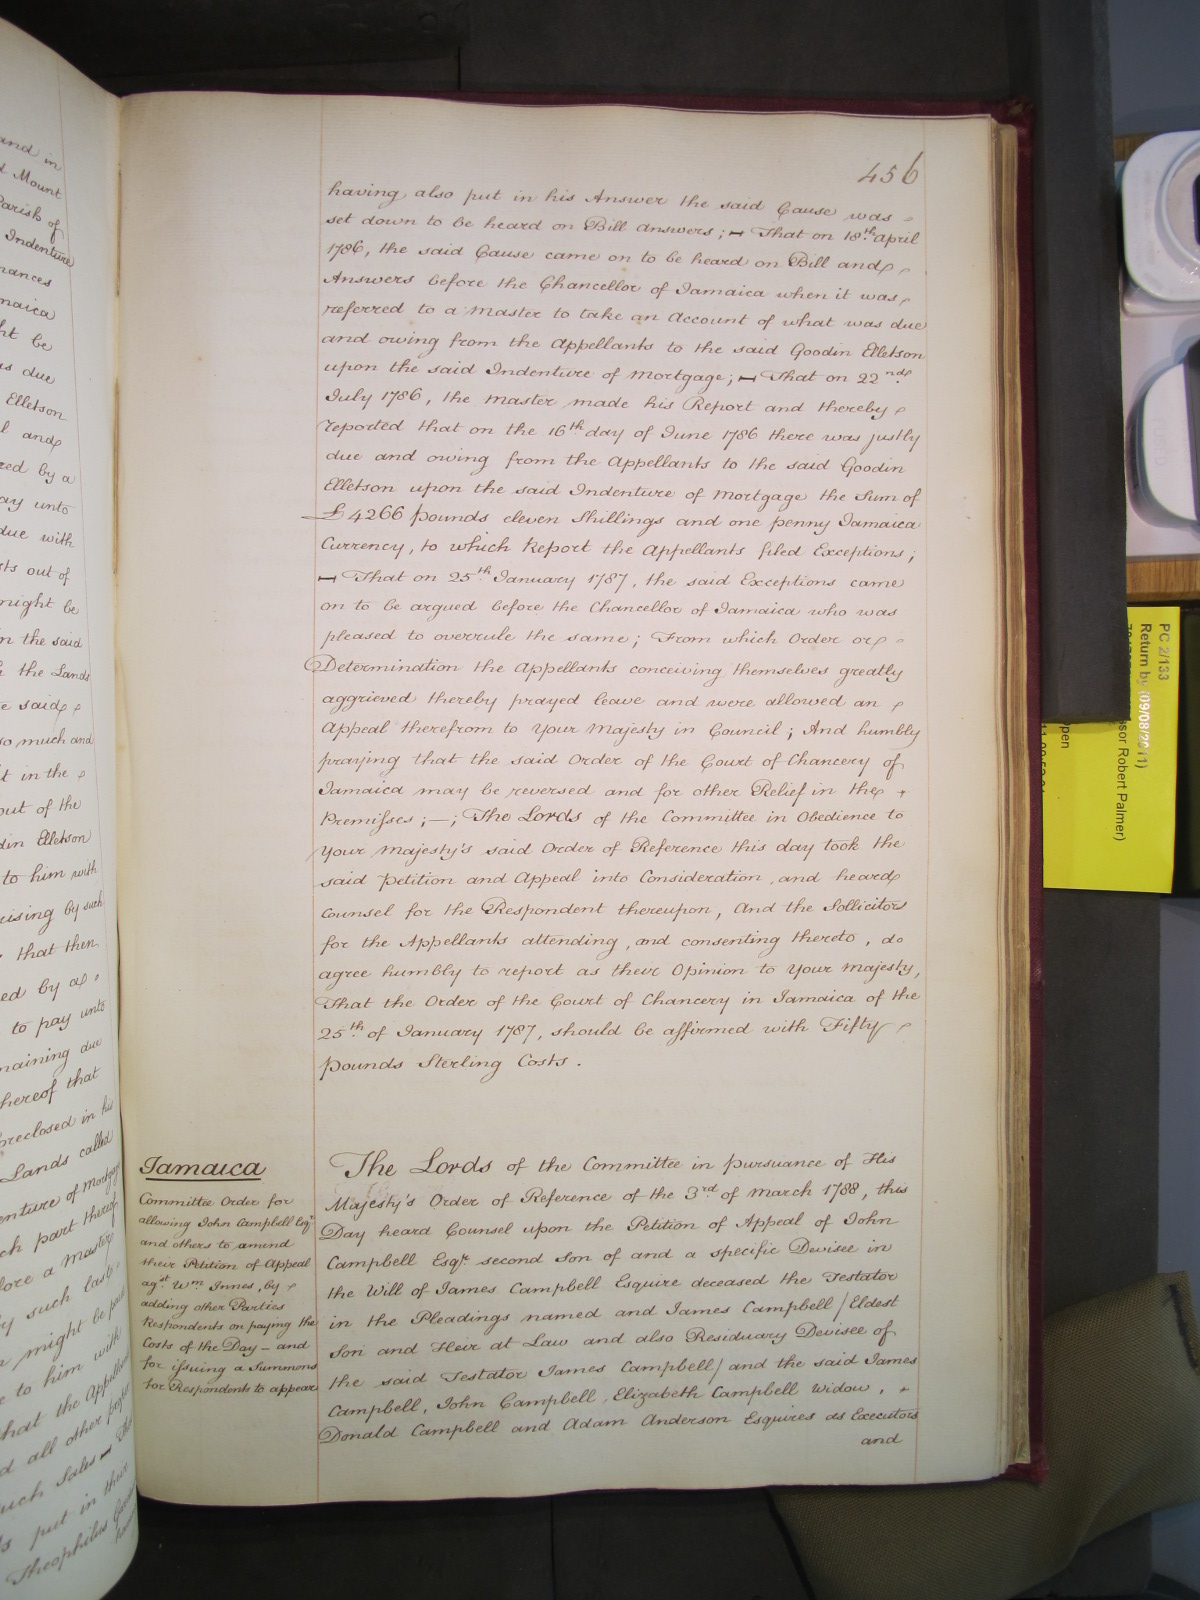 and in
Mount
Parish of
Indenture
be
due
Elletson
and
by a
unto
due with
out of
might be
in the said
the Lands
said
so much and
in the
out of the
Elletson
to him with
by such
that then
by a
to pay unto
due
that
foreclosed in his
Lands called
of Mortgage
part thereof
a Master
such last
might be paid
to him with
that the Appellants
all other proper
such Sales
put in their
Theophilus
456
having also put in his Answer the said Cause was
set down to be heard on Bill Answers; — That on 18th April
1786, the said Cause came on to be heard on Bill and
Answers before the Chancellor of Jamaica when it was
referred to a Master to take an Account of what was due
and owing from the Appellants to the said Goodin Elletson
upon the said Indenture of Mortgage; — That on 22nd
July 1786, the Master made his Report and thereby
reported that on the 16th day of June 1786 there was justly
due and owing from the Appellants to the said Goodin
Elletson upon the said Indenture of Mortgage the Sum of
£4266 pounds eleven Shillings and one penny Jamaica
Currency, to which Report the Appellants filed Exceptions;
— That on 25th January 1787, the said Exceptions came
on to be argued before the Chancellor of Jamaica who was
pleased to overrule the same; From which Order or
Determination the Appellants conceiving themselves greatly
aggrieved thereby prayed leave and were allowed an
Appeal therefrom to Your Majesty in Council; And humbly
praying that the said Order of the Court of Chancery of
Jamaica may be reversed and for other Relief in the
Premisses; —; The Lords of the Committee in Obedience to
Your Majesty's said Order of Reference this day took the
said Petition and Appeal into Consideration, and heard
Counsel for the Respondent thereupon, And the Sollicitors
for the Appellants attending, and consenting thereto, do
agree humbly to report as their Opinion to Your Majesty,
That the Order of the Court of Chancery in Jamaica of the
25th of January 1787, should be affirmed with Fifty
Pounds Sterling Costs.
Jamaica
Committee Order for
allowing John Campbell Esqr
and others to amend
their Petition of Appeal
agst Wm Innes, by
adding other Parties
Respondents on paying the
Costs of the Day — and
for issuing a Summons
for Respondents to appear
The Lords of the Committee in pursuance of His
Majesty's Order of Reference of the 3rd of March 1788, this
Day heard Counsel upon the Petition of Appeal of John
Campbell Esqr. second Son of and a specific Devisee in
the Will of James Campbell Esquire deceased the Testator
in the Pleadings named and James Campbell /Eldest
Son and Heir at Law and also Residuary Devisee of
the said Testator James Campbell/ and the said James
Campbell, John Campbell, Elizabeth Campbell Widow,
Donald Campbell and Adam Anderson Esquires as Executors
and
PC 2/133
Return by (09/08/2011)
Robert Palmer)